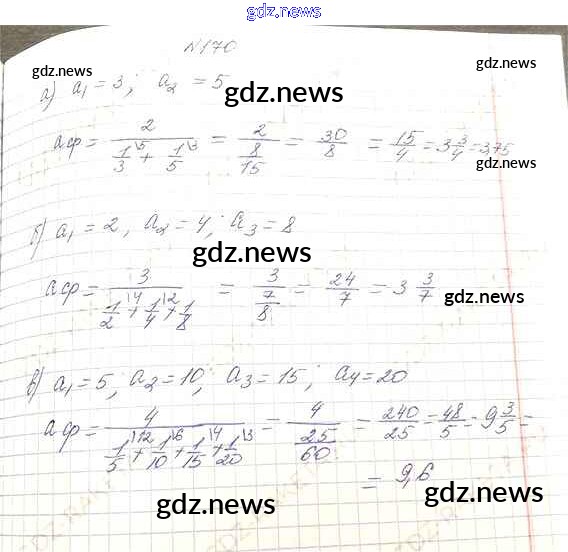 gdz.news
gdz.news
№170
gdz.news
а) a₁ = 3; a₂ = 5
gdz.news
aф = 2 / (1/3 \5 + 1/5 \3) = 2 / (8/15) = 30/8 = 15/4 = 3 3/4 = 3,75
gdz.news
б) a₁ = 2, a₂ = 4; a₃ = 8
gdz.news
aф = 3 / (1/2 \4 + 1/4 \2 + 1/8) = 3 / (7/8) = 24/7 = 3 3/7
gdz.news
в) a₁ = 5; a₂ = 10; a₃ = 15; a4 = 20
aф = 4 / (1/5 \12 + 1/10 \6 + 1/15 \4 + 1/20 \3) = 4 / (25/60) = 240/25 = 48/5 = 9 3/5 =
= 9,6
gdz.news
gdz.news
gdz.news